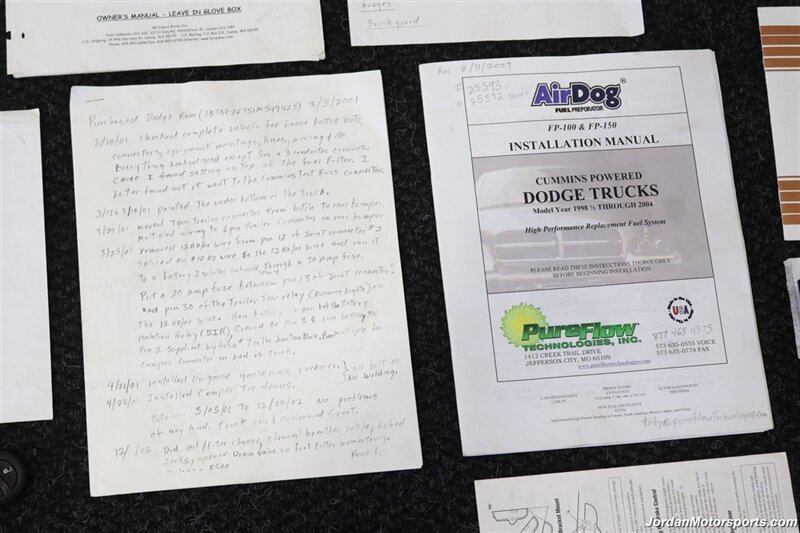 OWNER'S MANUAL – LEAVE IN GLOVE BOX
BD Engine Brake Inc.
Gauges
Brush guard
Purchased Dodge Ram 3/5/2001
3/10/01 checked complete vehicle for loose bolts & nuts,
connectors, equipment mountings, hoses, wiring & etc.
Everything looked good except for a 3 conductor connector
cover I found setting on top of the fuel filter. I
later found out it went to the Cummins Test Boss connector.
3/17 & 3/18/01 painted the under bottom of the truck.
3/24/01 moved 7 pin Trailer connector from hitch to rear bumper,
multipled wiring to 6 pin Trailer Connector on rear bumper
3/25/01 removed 12 RD/or wire from pin 12 of Joint connector #2
spliced on #10 RD wire to the 12 RD/or wire and ran it
to a battery Isolator solenoid through a 30 amp fuse.
Put a 20 amp fuse between pin 13 of Joint connector
and pin 30 of the Trailer Tow relay (Running Lights) on
the 12 RD/or wire. Ran battery to pin 1 of the Battery
Isolation Relay (BIR), Ground to pin 3 & run battery to
Pin 2 supplied by fuse #7 in the Junction Block. Ran multiple for
Camper Connector in bed of truck.
4/21/01 installed Unigoose gooseneck receiver } all bolt in
4/28/01 Installed Camper Tie downs. } No welding.
Between 3/05/01 To 12/28/02 No problems
of any kind. Truck ran & preformed Great.
12/ /02 Did oil/filter change, cleaned breather bottle, lubed
Zerks, opened Drain valve on fuel filter momentarily.
Page 1.
Rec 8/11/2009
# 25593
# 25592
AirDog®
FUEL PREPORATOR
FP-100 & FP-150
INSTALLATION MANUAL
CUMMINS POWERED
DODGE TRUCKS
Model Year 1998 ½ THROUGH 2004
High Performance Replacement Fuel System
PLEASE READ THESE INSTRUCTIONS THOROUGHLY
BEFORE BEGINNING INSTALLATION
PureFlow
TECHNOLOGIES, INC.
1412 CREEK TRAIL DRIVE
JEFFERSON CITY, MO 65109
www.pureflowtechnologies.com
USA
877 463 4373
573 635-0555 VOICE
573 635-0778 FAX
CANADIAN PATENT
US PATENTS
AUSTRALIAN PATENT
NEW ZEALAND PATENT
toby@pureflowtechnologies.com
Bracket Mount
Brake Control
JordanMotorsports.com